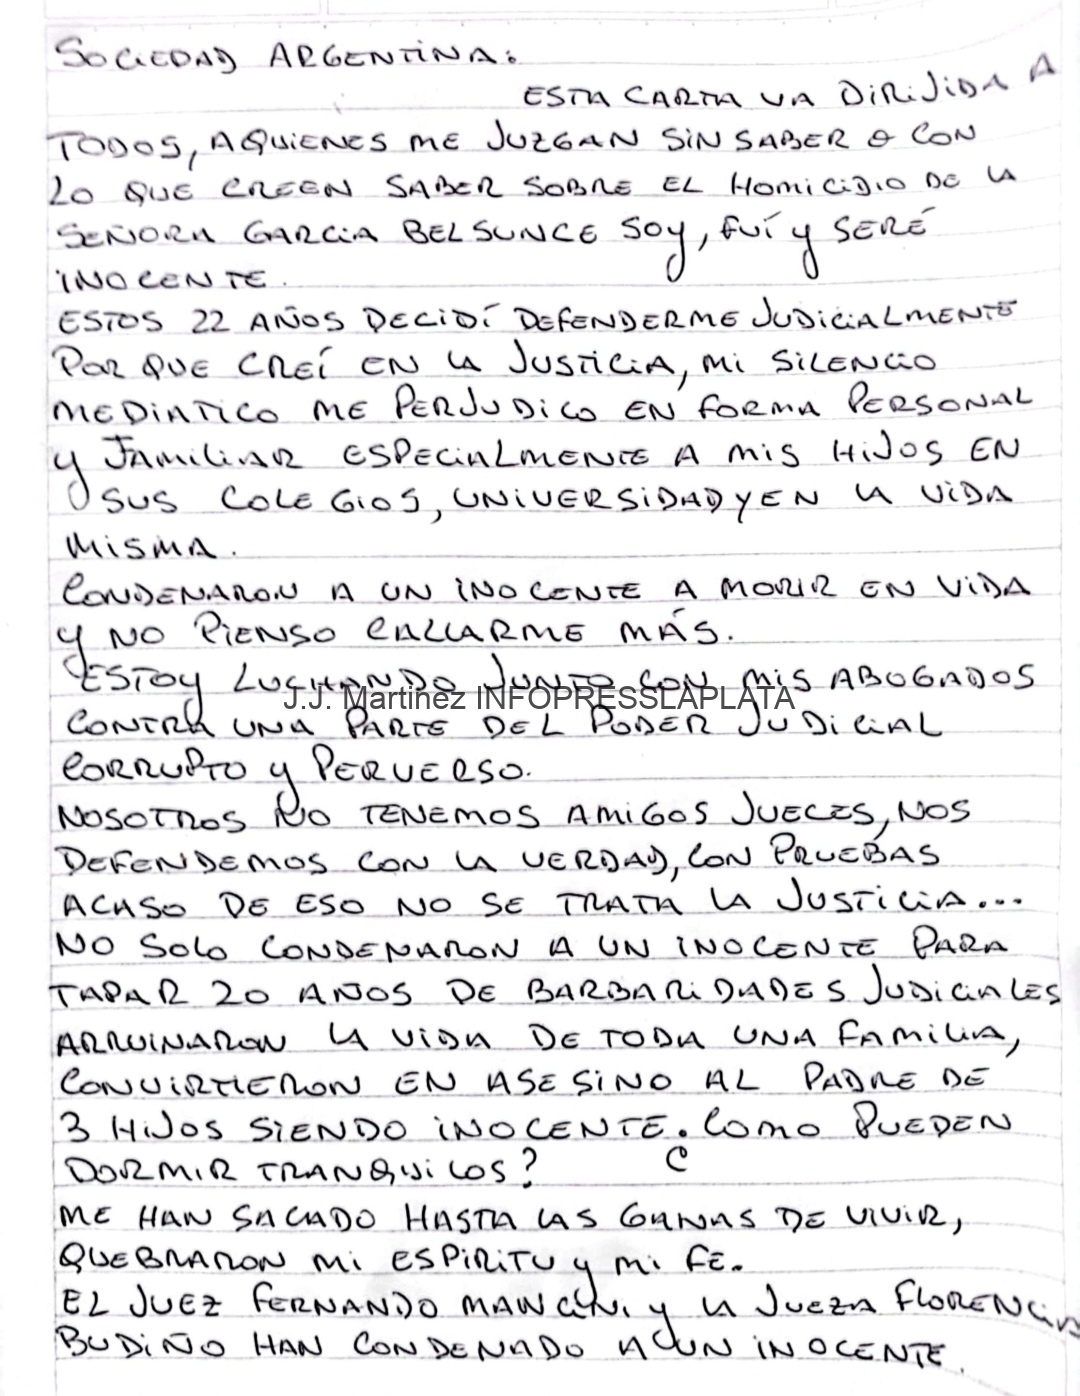 SOCIEDAD ARGENTINA:
ESTA CARTA VA DIRIJIDA A
TODOS, AQUIENES ME JUZGAN SIN SABER O CON
LO QUE CREEN SABER SOBRE EL HOMICIDIO DE LA
SEÑORA GARCIA BELSUNCE SOY, FUÍ y SERÉ
INOCENTE.
ESTOS 22 AÑOS DECIDÍ DEFENDERME JUDICIALMENTE
POR QUE CREÍ EN LA JUSTICIA, MI SILENCIO
MEDIATICO ME PERJUDICO EN FORMA PERSONAL
y FAMILIAR ESPECIALMENTE A MIS HIJOS EN
SUS COLEGIOS, UNIVERSIDAD Y EN LA VIDA
MISMA.
CONDENARON A UN INOCENTE A MORIR EN VIDA
y NO PIENSO CALLARME MÁS.
ESTOY LUCHANDO JUNTO CON MIS ABOGADOS
J.J. Martinez INFOPRESSLAPLATA
CONTRA UNA PARTE DEL PODER JUDICIAL
CORRUPTO y PERVERSO.
NOSOTROS NO TENEMOS AMIGOS JUECES, NOS
DEFENDEMOS CON LA VERDAD, CON PRUEBAS
ACASO DE ESO NO SE TRATA LA JUSTICIA...
NO SOLO CONDENARON A UN INOCENTE PARA
TAPAR 20 AÑOS DE BARBARIDADES JUDICIALES
ARRUINARON LA VIDA DE TODA UNA FAMILIA,
CONVIRTIERON EN ASESINO AL PADRE DE
3 HIJOS SIENDO INOCENTE. ¿COMO PUEDEN
DORMIR TRANQUILOS?
ME HAN SACADO HASTA LAS GANAS DE VIVIR,
QUEBRARON MI ESPIRITU y MI FE.
EL JUEZ FERNANDO MANCINI y LA JUEZA FLORENCIA
BUDIÑO HAN CONDENADO A UN INOCENTE.